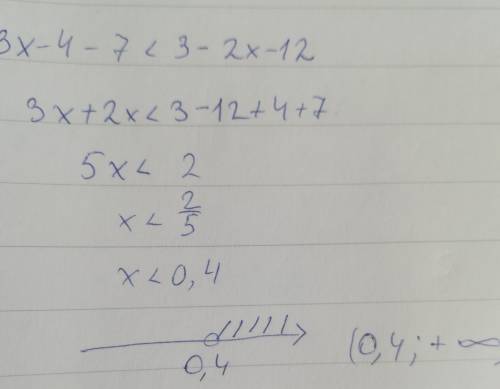 3x-4-7<3-2x-12
3x+2x<3-12+4+7
5x< 2
x<2/5
x<0,4
0,4 (0,4;+∞)